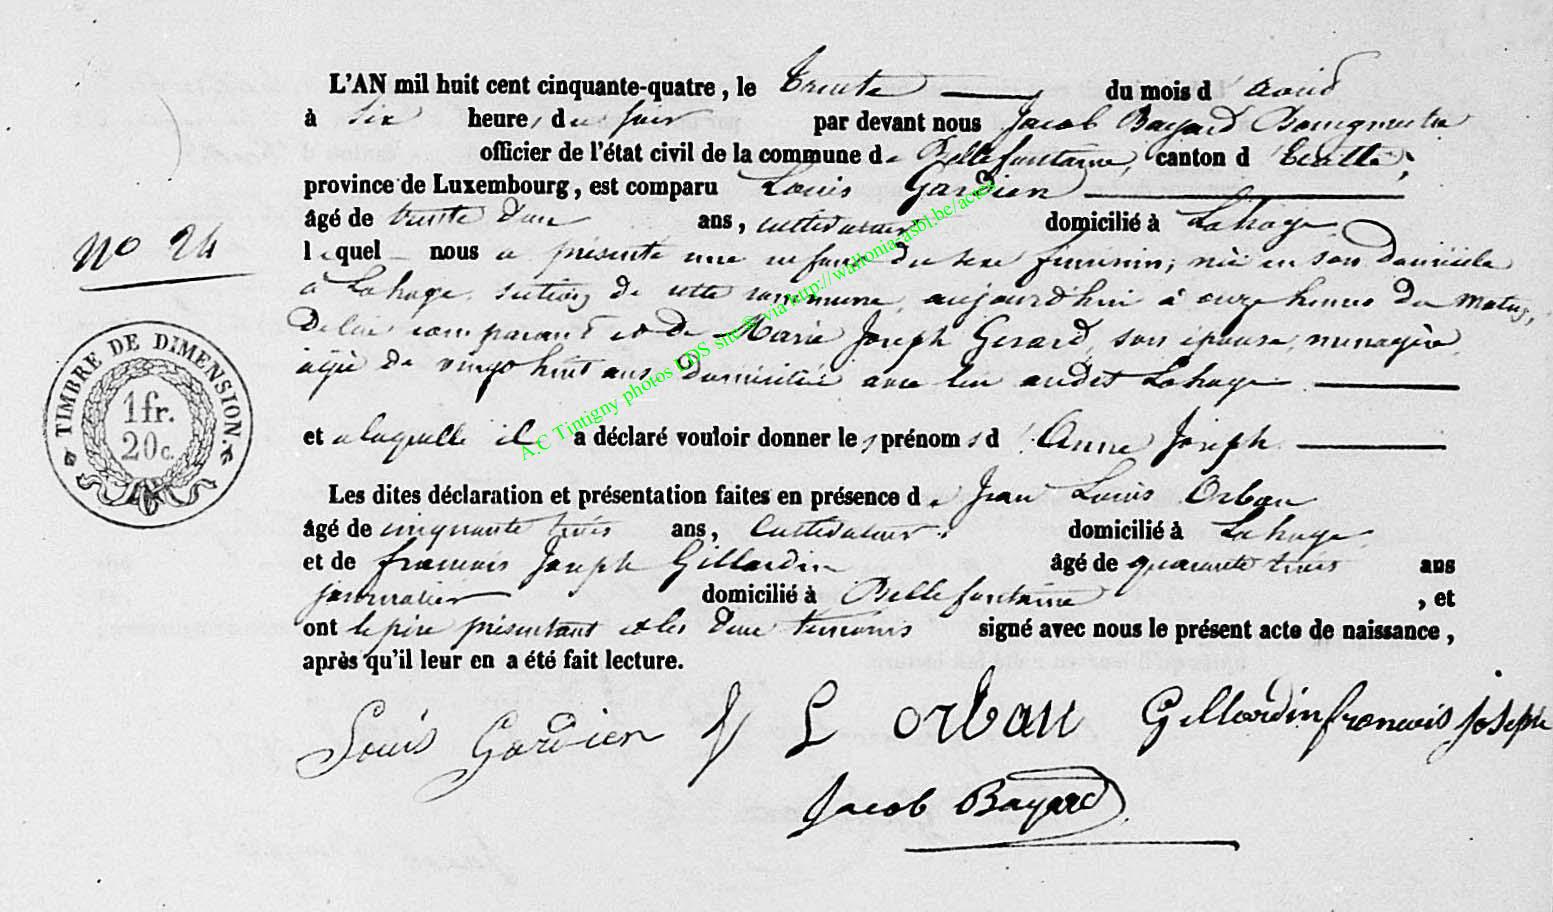 L'AN mil huit cent cinquante-quatre, le trente du mois d'août
à six heures du soir par devant nous Jacob Bayard Bourgmestre
officier de l'état civil de la commune de Bellefontaine, canton d'Etalle,
province de Luxembourg, est comparu Louis Gardien
âgé de trente d'un ans, cultivateur domicilié à Lahage
lequel nous a présenté une enfant du sexe féminin, née en son domicile
à Lahage section de cette commune, aujourd'hui à onze heures du matin,
De lui comparant et de Marie Joseph Gerard, son épouse, menagère
agée de vingt huit ans domiciliée avec lui audit Lahage
et a laquelle il a déclaré vouloir donner les prénoms d'Anne Joseph
Les dites déclaration et présentation faites en présence de Jean Louis Orban
âgé de cinquante trois ans, cultivateur domicilié à Lahage
et de francois Joseph Gillardin âgé de quarante trois ans
journalier domicilié à Bellefontaine, et
ont le père présentant et les deux temoins signé avec nous le présent acte de naissance,
après qu'il leur en a été fait lecture.
Louis Gardien J L orban Gillardin francois joseph
Jacob Bayard
No 24
TIMBRE DE DIMENSION.
1 fr.
20 c.
A.C Tintigny photos LDS site © via http://wallonia-asbl.be/actes